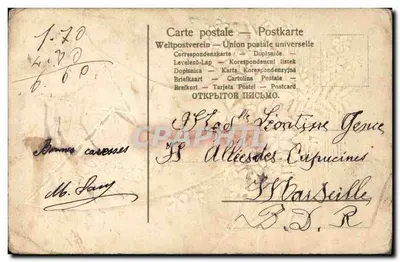 Carte postale — Postkarte
Weltpostverein — Union postale universelle
Correspondenzkarte — Dopisnice
Levelező-Lap — Korespondenční lístek
Dopisnica — Karta Korespondencyjna
Briefkaart — Cartolina Postale
Brefkort — Tarjeta Postal — Postcard
ОТКРЫТОЕ ПИСЬМО.
1.70
Léontine
Bonnes caresses
Allées des Capucines
Marseille
B. D. R
M.